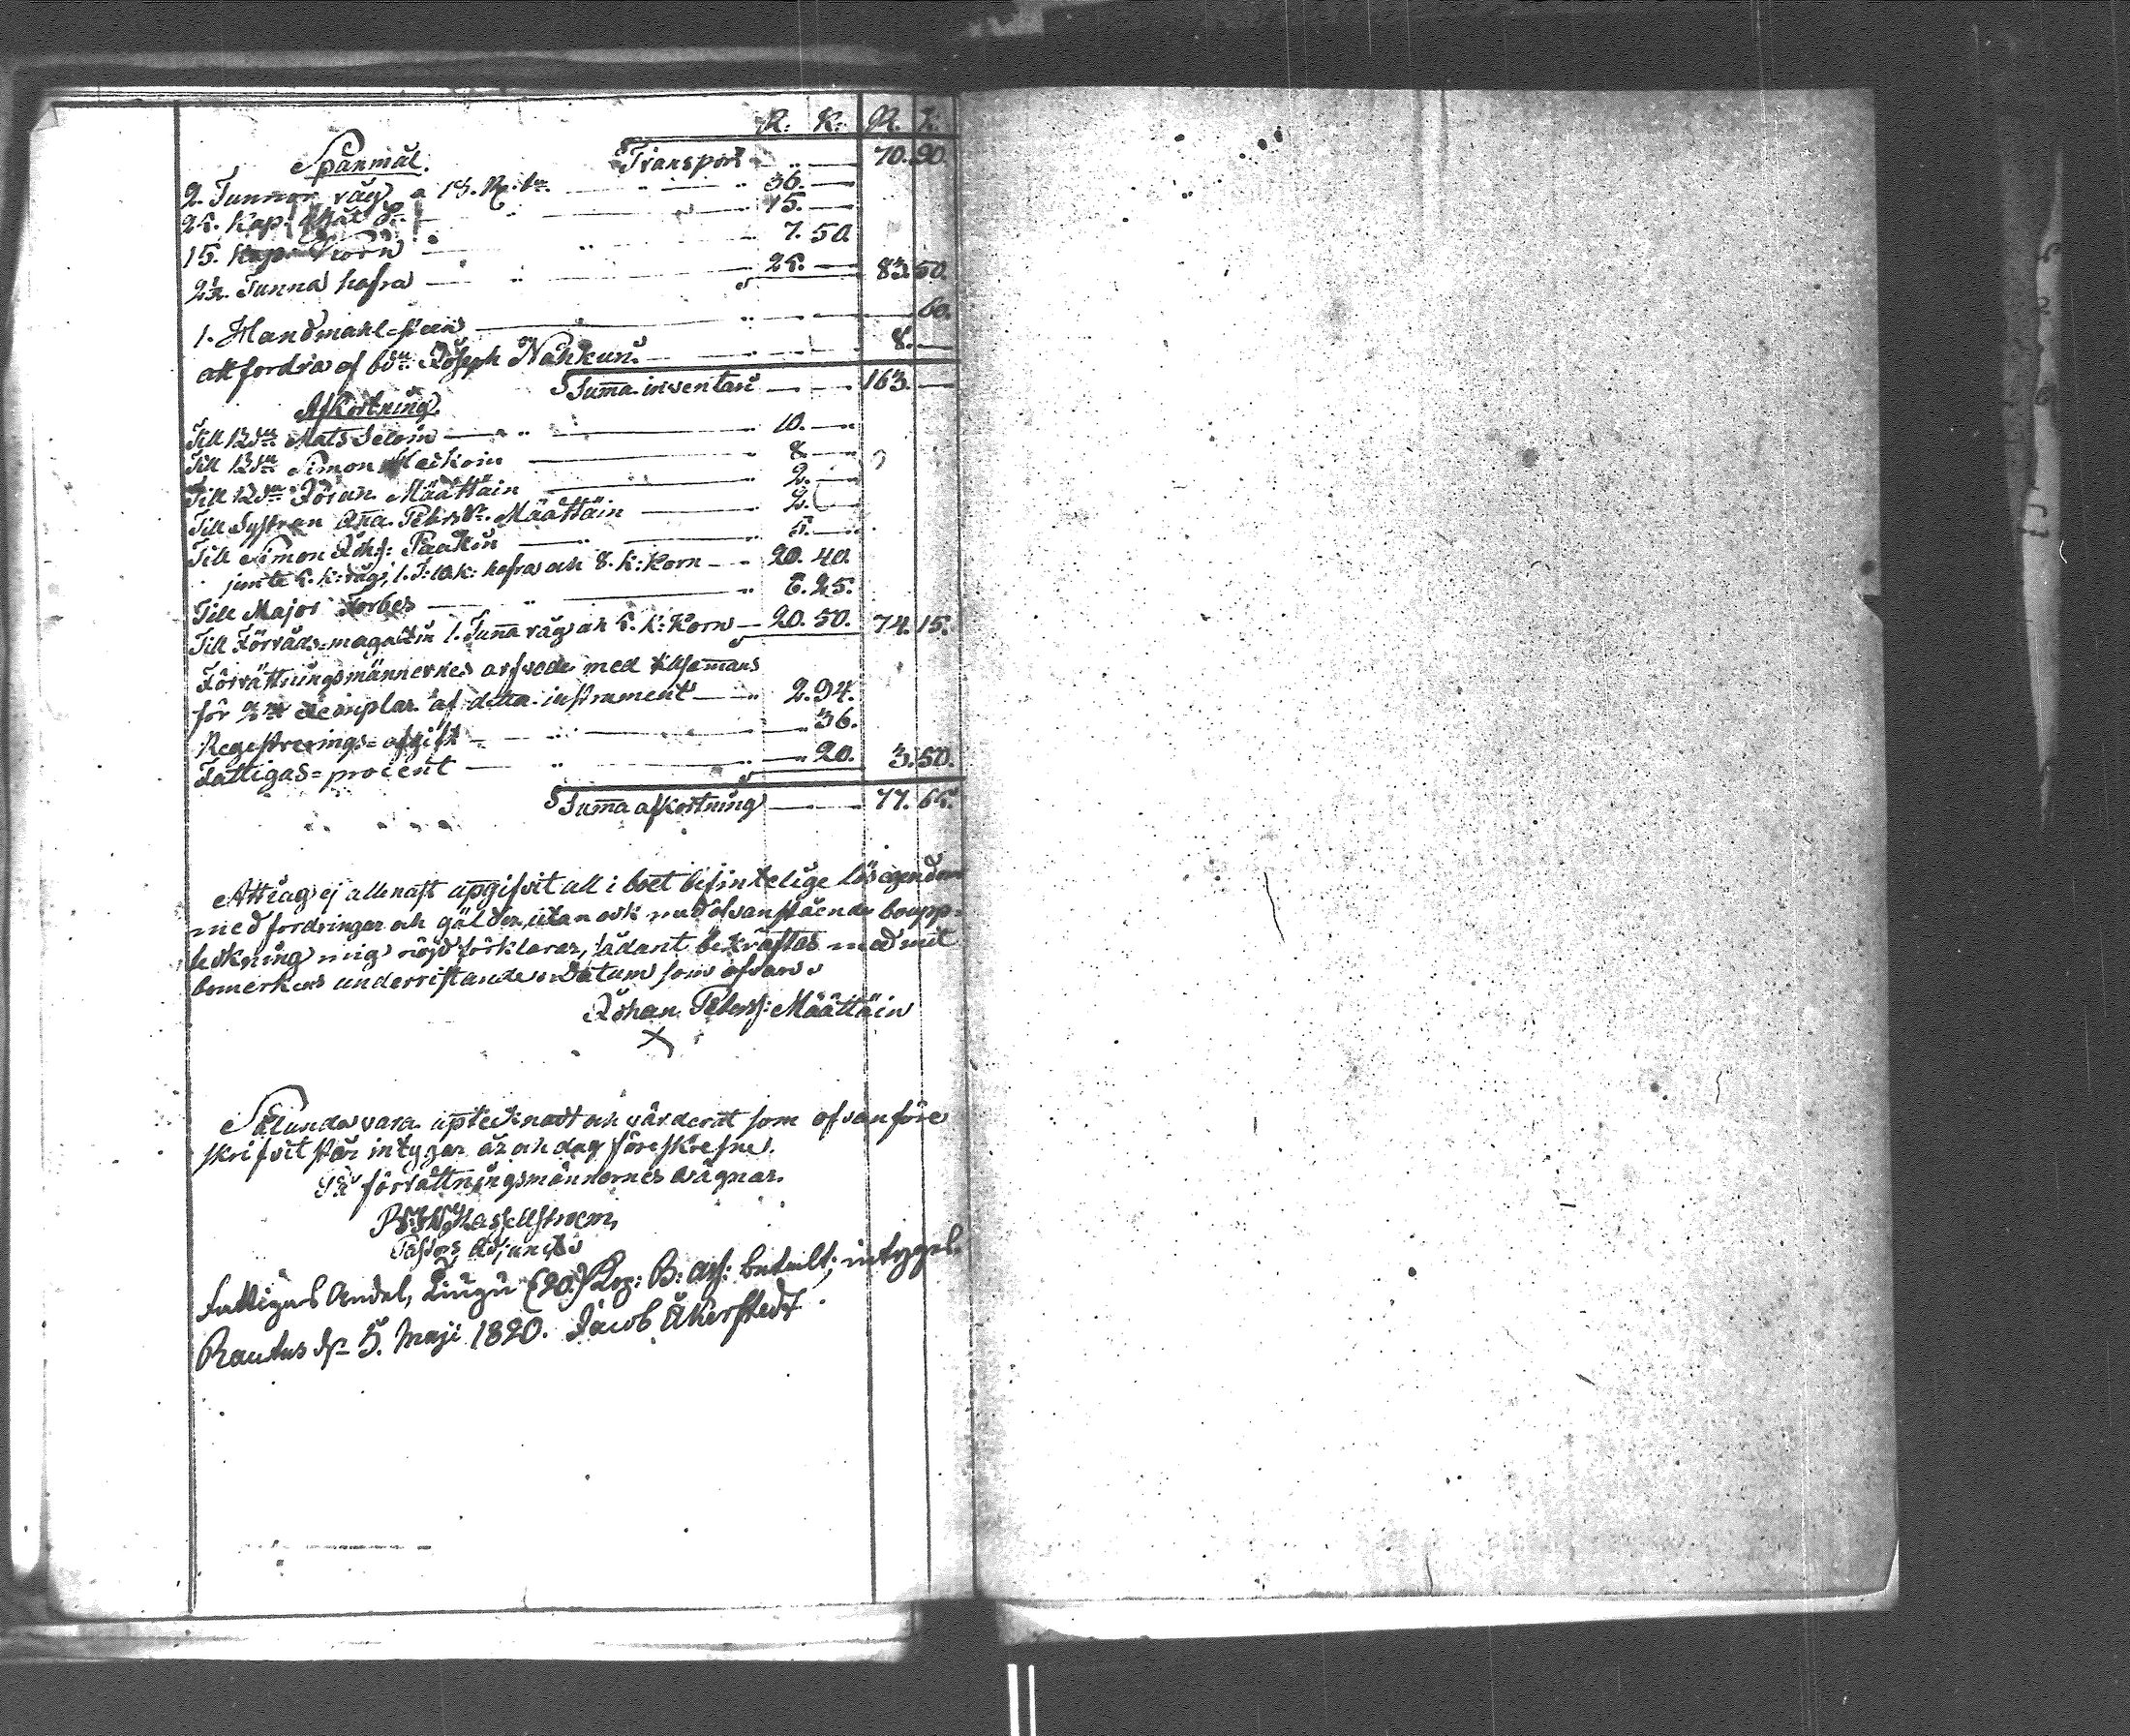 R. K. R. K.
Spanmål. Transport 70. 90.
2. Tunnor råg a 18. R: 36.
25. Kap. 15.
15. Kap. Korn 7. 50.
2½. Tunna hafra 25. 83. 50.
1. Handmahl-sten 60.
att fordra af Joseph Nahkun. 8.
Summa inventarii 163.
Afkortning.
Till Mats 10.
Till Simon 8.
Till Jöran Määttäin 2.
Till Systran Aña Petersdr. Määttäin 2.
Till Simon Paakin 5.
jemte 5. k: råg, 1. T: 10 k: hafra och 8. k: Korn 20. 40.
Till Major Forbes 6. 25.
Till Förråds-magazin 1. Tuña råg och 5. k: Korn 20. 50. 74. 15.
Förrättningsmännernes arfvode med tillsamans
för exemplar af detta instrument 2. 94.
Registrerings-afgift 36.
Fattigas-procent 20. 3. 50.
Suma afkortning 77. 65.
Att jag ej allenast upgifvit all i boet befintelige lös egendom
med fordringar och gälder, utan ock med ofvanstående boupp-
teckning mig nöjd förklarar, sådant bekräftas med mit
bomerkes underristande. Datum som ofvan.
Johan Peterss: Määttäin
X
Sålunda vara uptecknadt och värderat som ofvanföre
skrifvit står intygar år och dag föreskrefne.
På förrättningsmännernes vägnar.
Hasselstroem,
Pastors Adjunct.
Fattigas Andel, Tiugu (20.) Kop: B: Ass: betalt; intygel.
Rautus dn 5. Maji 1820. Jacob Åkerstedt.